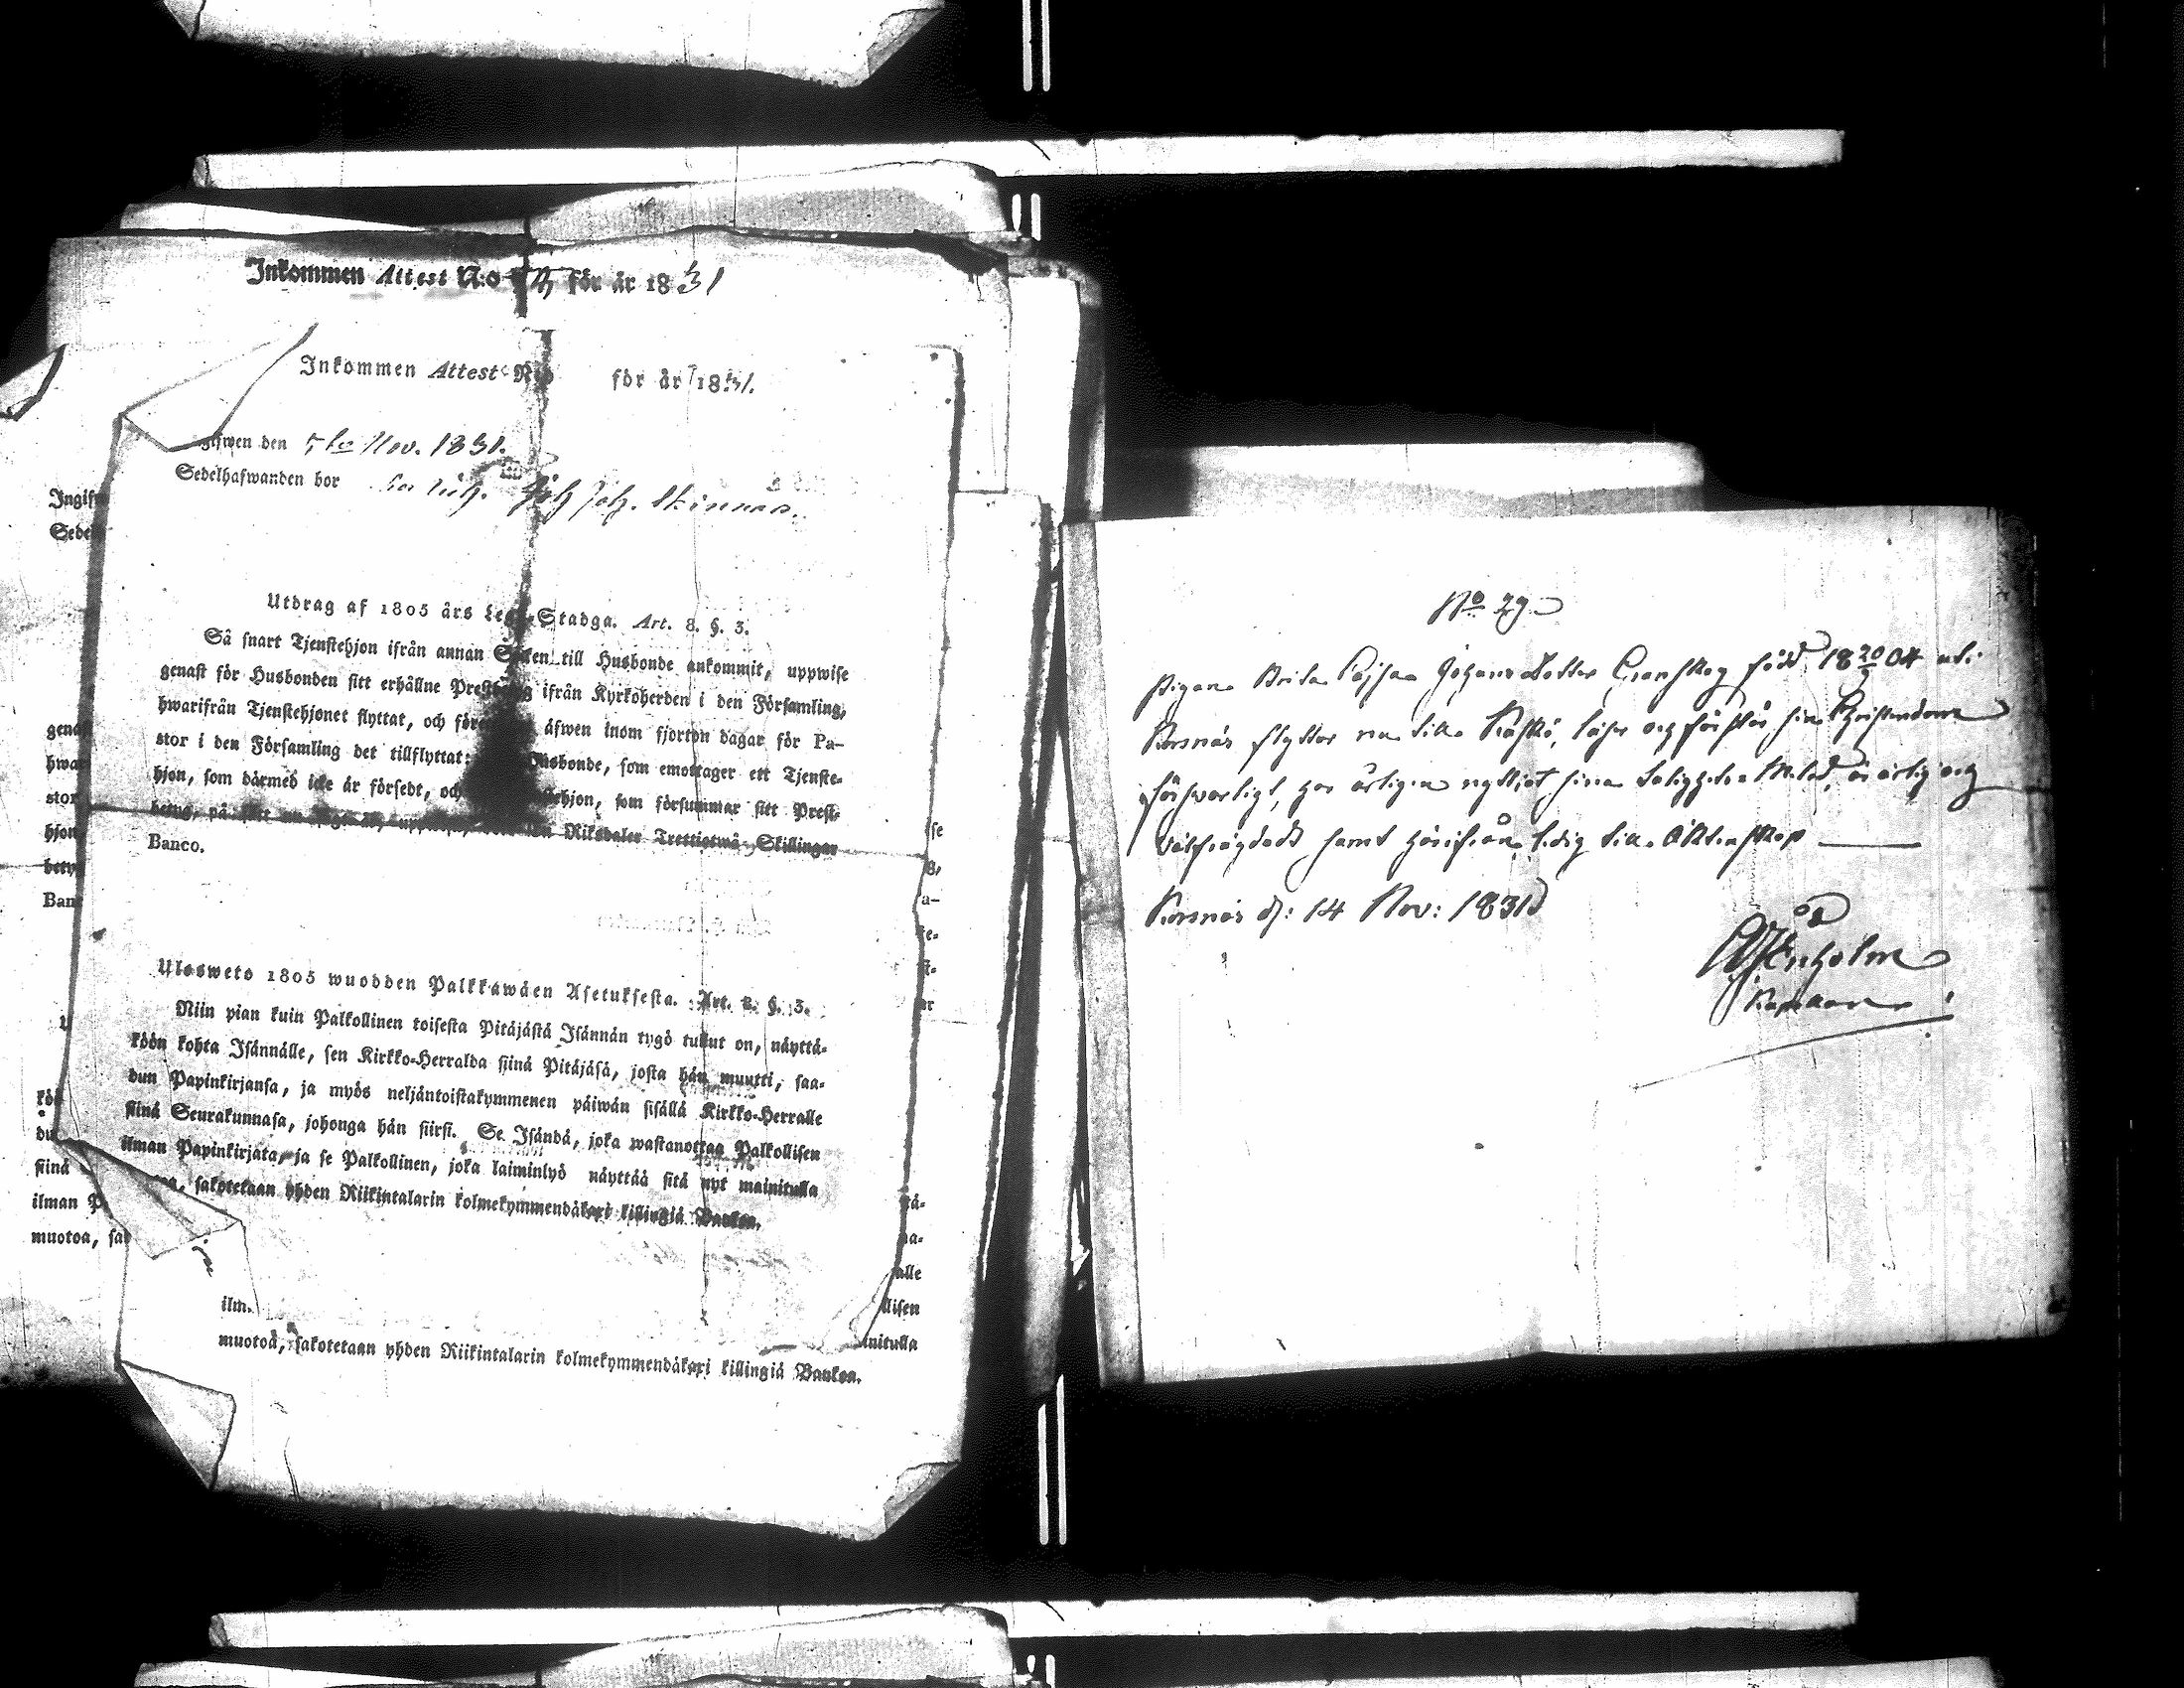 Inkommen Attest N:o för år 1831
Inkommen Attest N:o för år 1831.
gifwen den 5te Nov. 1831.
Sedelhafwanden bor Joh. Skinnas.
Utdrag af 1805 års Lego-Stadga. Art. 8. §. 3.
Så snart Tjenstehjon ifrån annan Socken till Husbonde ankommit, uppwise
genast för Husbonden sitt erhållne Prestbetyg ifrån Kyrkoherden i den Församling,
hwarifrån Tjenstehjonet flyttat, och före äfwen inom fjorton dagar för Pa-
stor i den Församling det tillflyttat: Husbonde, som emottager ett Tjenste-
hjon, som därmed icke är försedt, och Tjenstehjon, som försummar sitt Prest-
betyg, på sätt nu sagdt är, uppwisa, böte en Riksdaler Trettiotwå Skillingar
Banco.
Ulosweto 1805 wuodden Palkkawäen Asetuksesta. Art. 8. §. 3.
Niin pian kuin Palkollinen toisesta Pitäjästä Isännän tygö tullut on, näyttä-
köön kohta Isännälle, sen Kirkko-Herralda siinä Pitäjäsä, josta hän muutti, saa-
dun Papinkirjansa, ja myös neljäntoistakymmenen päiwän sisällä Kirkko-Herralle
siinä Seurakunnasa, johonga hän siirsi. Se Isändä, joka wastanottaa Palkollisen
ilman Papinkirjata, ja se Palkollinen, joka laiminlyö näyttää sitä nyt mainitulla
sakotetaan yhden Riikintalarin kolmekymmendäkaxi killingiä Bankoa.
muotoa, sakotetaan yhden Riikintalarin kolmekymmendäkaxi killingiä Bankoa.
No 29.
Pigan Brita Cajsa Johans Dotter Granskog född 18 20/9 04 uti
Korsnäs flyttar nu till Kaskö, läser och förstår sin Christendom
försvarligt, har årligen nyttjat sina Saliggörelse Medel, är ärlig och
välfrägdad samt härifrån ledig till Äktenskap
Korsnäs d: 14 Nov: 1831